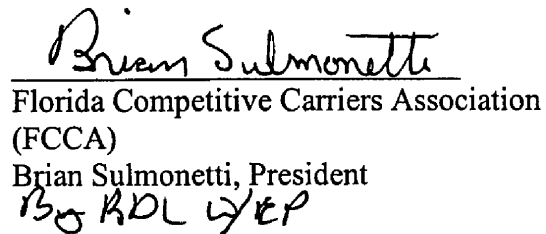 Brian Sulmonetti
Florida Competitive Carriers Association
(FCCA)
Brian Sulmonetti, President
By RDL w/EP